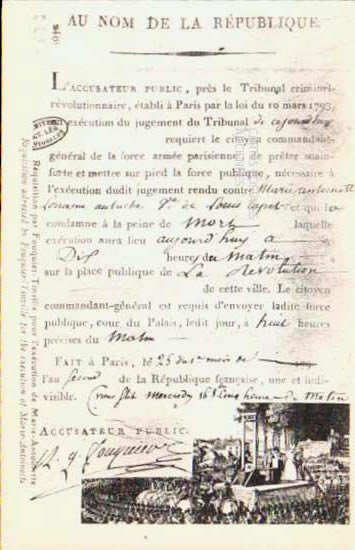 AU NOM DE LA RÉPUBLIQUE.
L'ACCUSATEUR PUBLIC, près le Tribunal criminel-
révolutionnaire, établi à Paris par la loi du 10 mars 1793,
exécution du jugement du Tribunal de ce jourd'huy
requiert le citoyen commandant-
général de la force armée parisienne, de prêter main-
forte et mettre sur pied la force publique, nécessaire à
l'exécution dudit jugement rendu contre Marie antoinette
Lorraine autriche Ve. de Louis Capet et qui la
condamne à la peine de Mort laquelle
exécution aura lieu aujourd'huy à
Dix heures du Matin
sur la place publique de La Révolution
de cette ville. Le citoyen
commandant-général est requis d'envoyer ladite force
publique, cour du Palais, ledit jour, à huit heures
précises du Matin
FAIT à Paris, le 25 du 1er mois de
l'an second de la République française, une et indi-
visible. mercredy 16 8bre Cinq heures du Matin
ACCUSATEUR PUBLIC.
A. q. Fouquier
Réquisition par Fouquier-Tinville pour l'exécution de Marie-Antoinette
Requisition ordered by Fouquier-Tinville for the execution of Marie-Antoinette